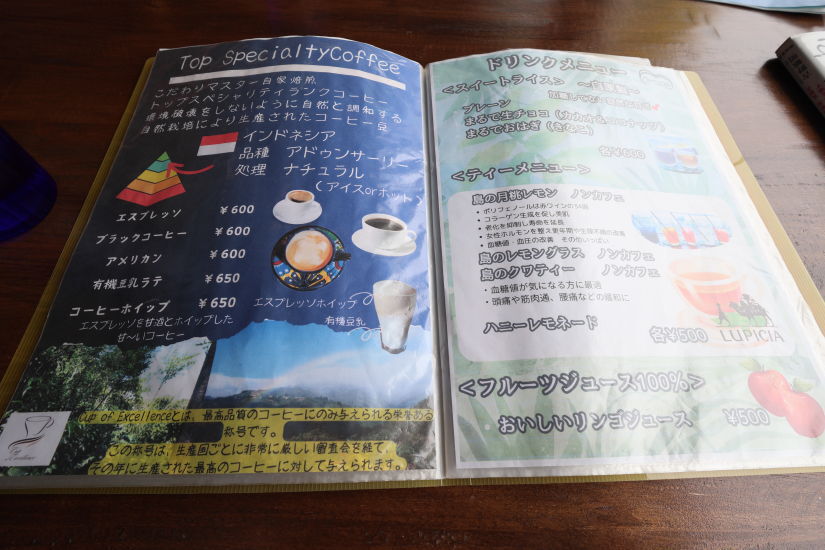 Top SpecialtyCoffee
こだわりマスター自家焙煎
トップスペシャリティランクコーヒー
環境破壊をしないように自然と調和する
自然栽培により生産されたコーヒー豆
インドネシア
品種 アドゥンサーリー
処理 ナチュラル
(アイスorホット)
エスプレッソ ¥600
ブラックコーヒー ¥600
アメリカン ¥600
有機豆乳ラテ ¥650
コーヒーホイップ ¥650
エスプレッソを甘酒とホイップした
甘〜いコーヒー
エスプレッソホイップ
有機豆乳
Cup of Excellenceとは、最高品質のコーヒーにのみ与えられる栄誉ある
称号です。
この称号は、生産国ごとに非常に厳しい審査会を経て、
その年に生産された最高のコーヒーに対して与えられます。
ドリンクメニュー
<スイートライス> 〜自家製〜
プレーン
まるで生チョコ(カカオ&ココナッツ)
まるでおはぎ(きなこ)
各¥600
<ティーメニュー>
島の月桃レモン ノンカフェ
• ポリフェノールは赤ワインの34倍
• コラーゲン生成を促し美肌
• 老化を抑制し寿命を延長
• 女性ホルモンを整え更年期や生理不順の改善
• 血糖値・血圧の改善 その他いっぱい
島のレモングラス ノンカフェ
島のクワティー ノンカフェ
• 血糖値が気になる方に最適
• 頭痛や筋肉痛、腰痛などの緩和に
ハニーレモネード 各¥500
LUPICIA
<フルーツジュース100%>
おいしいリンゴジュース ¥500